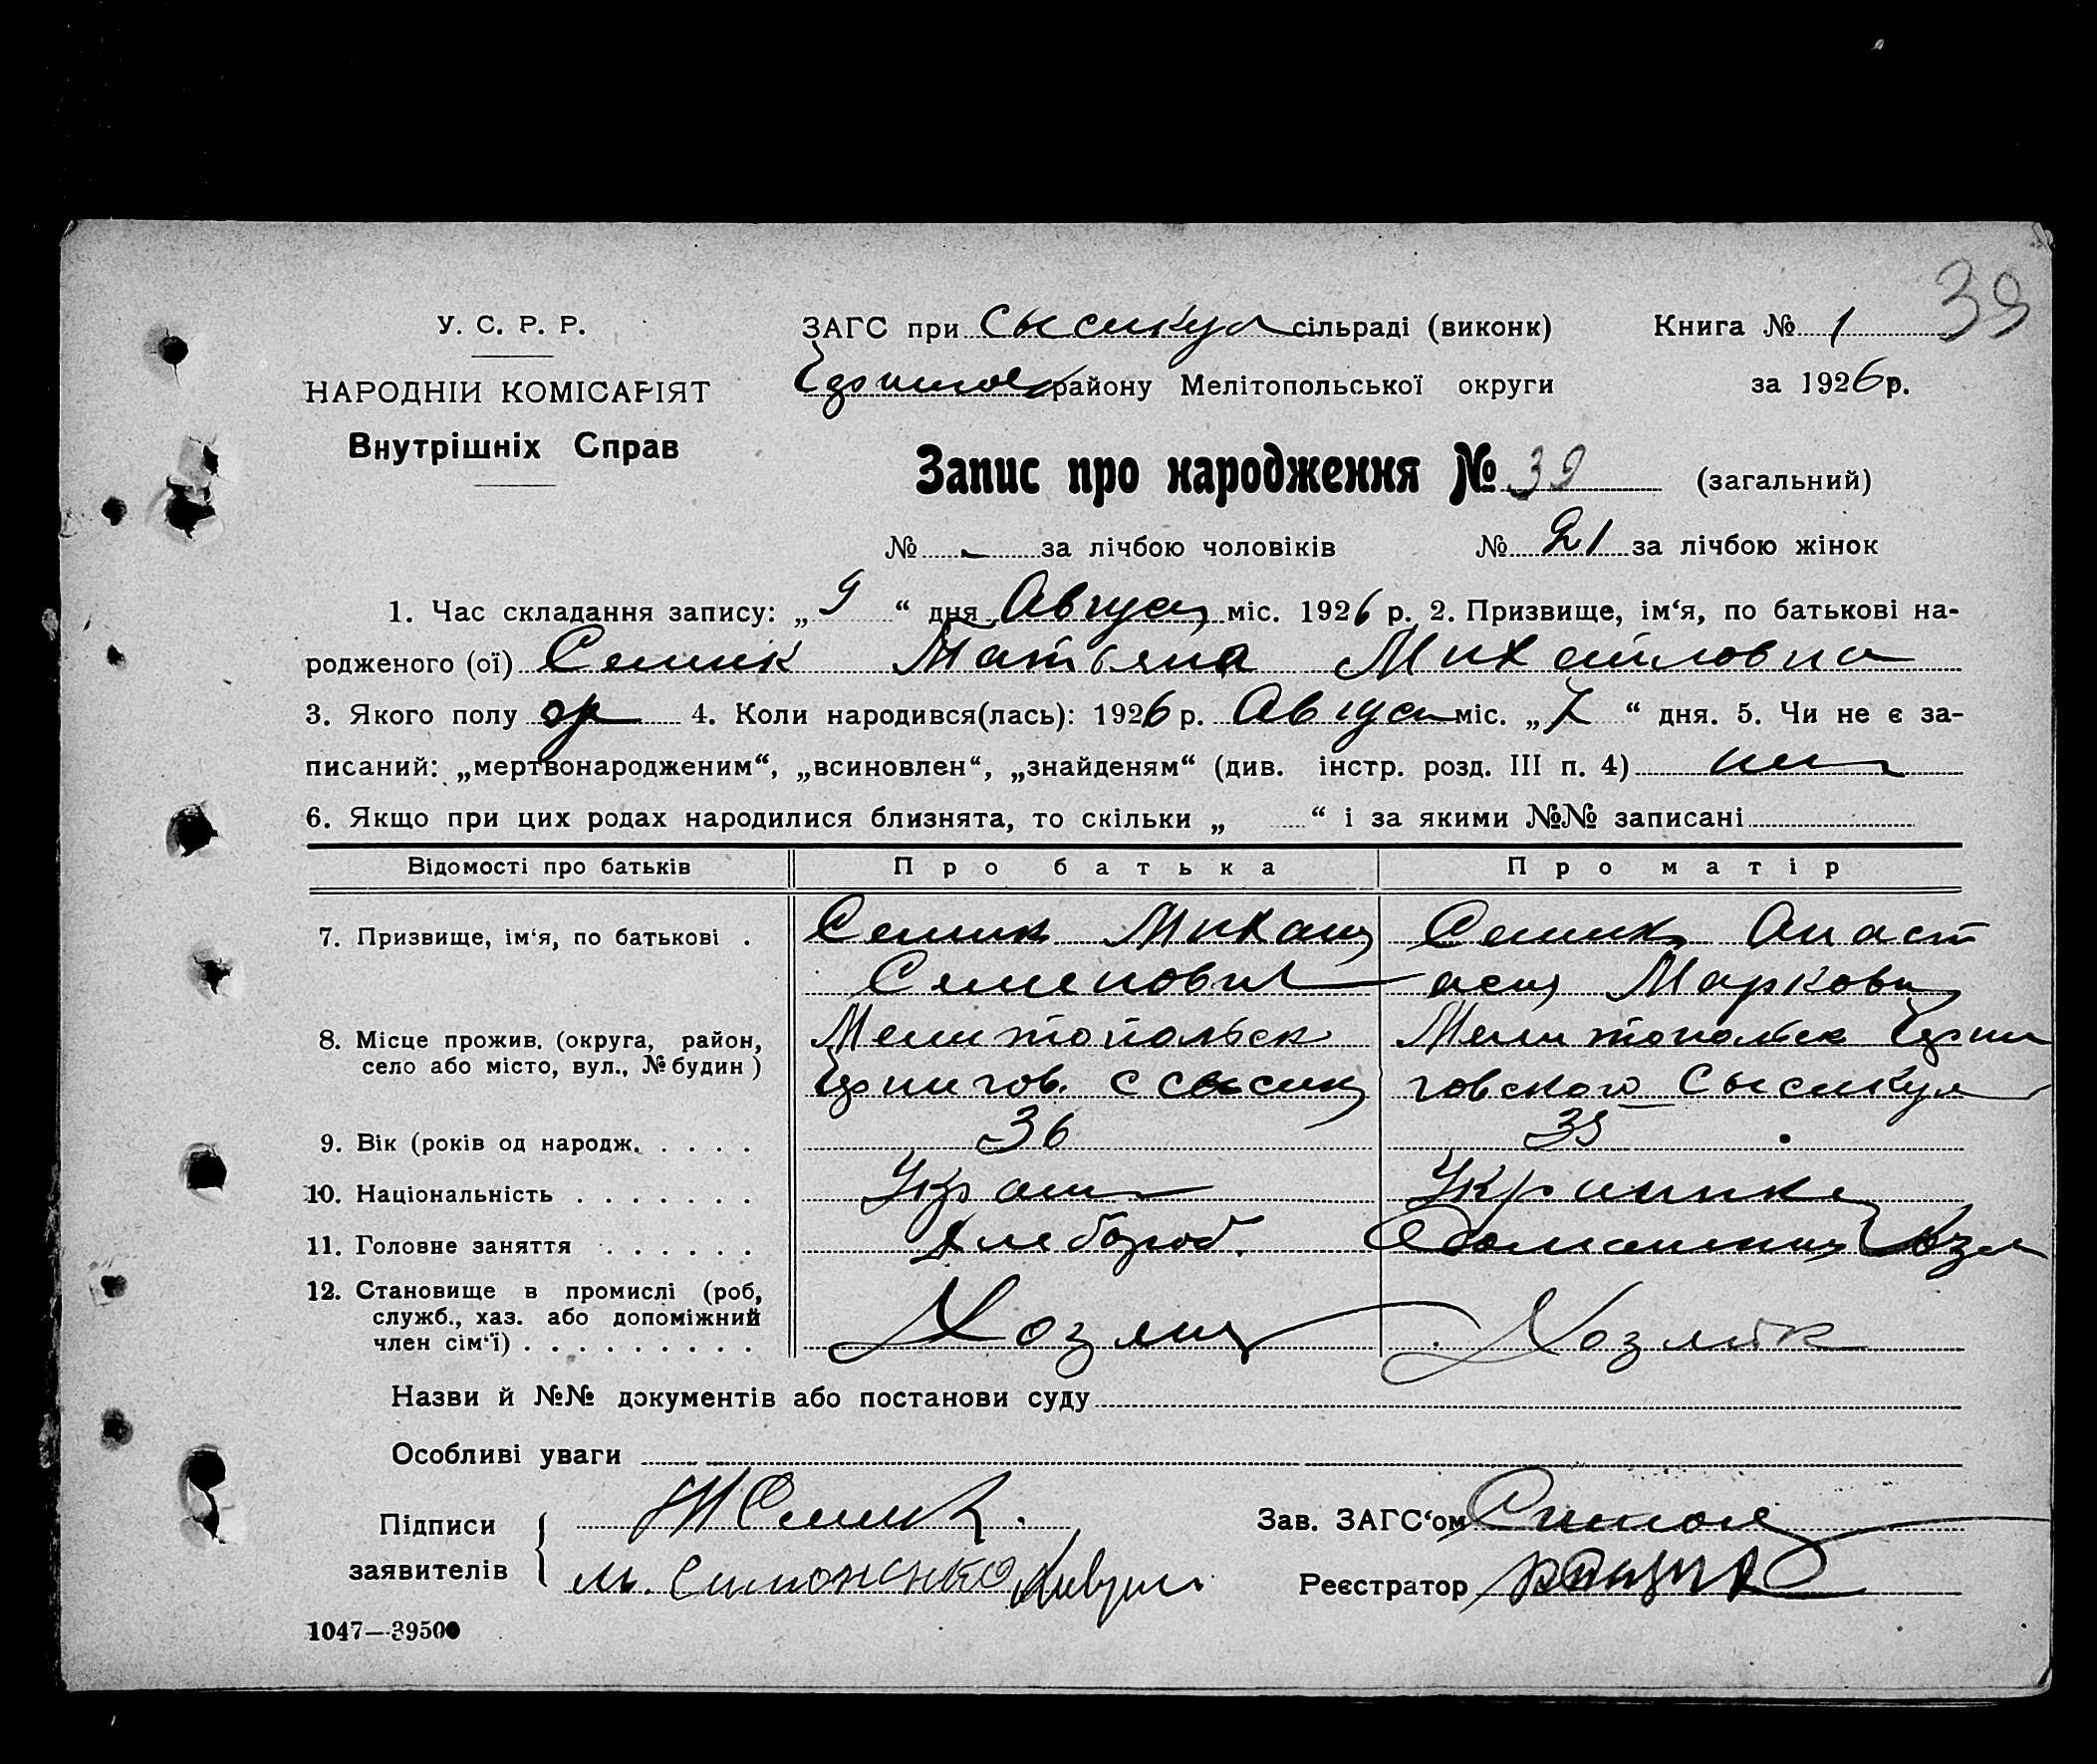 39
У. С. Р. Р.
НАРОДНІЙ КОМІСАРІЯТ
Внутрішніх Справ
ЗАГС при Сысикул сільраді (виконк)
району Мелітопольської округи
Книга № 1
за 1926 р.
Запис про народження № 39 (загальний)
№ - за лічбою чоловіків № 21 за лічбою жінок
1. Час складання запису: „9“ дня Август міс. 1926 р. 2. Призвище, ім‘я, по батькові на-
родженого (ої) Семик Татьяна Михайловна
3. Якого полу 4. Коли народився(лась): 1926 р. Август міс. „7“ дня. 5. Чи не є за-
писаний: „мертвонародженим“, „всиновлен“, „знайденям“ (див. інстр. розд. III п. 4) нет
6. Якщо при цих родах народилися близнята, то скільки „ “ і за якими №№ записані
Відомості про батьків Про батька Про матір
7. Призвище, ім‘я, по батькові . Семик Михаил Семик Анаст
Семенович асия Марковн
8. Місце прожив. (округа, район, Мелитопольск Мелитопольск Черни
село або місто, вул., № будин) Чернигов. с Сысик говского Сысикул
9. Вік (років од народж. . . . . 36 35
10. Національність . . . . . . . Украин Укрпинка
11. Головне заняття . . . . . . Хлебороб. Домашний Хозя
12. Становище в промислі (роб,
служб., хаз. або допоміжний
член сім‘ї) . . . . . . . . . Хозяин Хозяйк
Назви й №№ документів або постанови суду
Особливі уваги
Підписи
заявителів
М Семик.
М. Симоненко
Зав. ЗАГС‘ом
Реєстратор
1047—39500